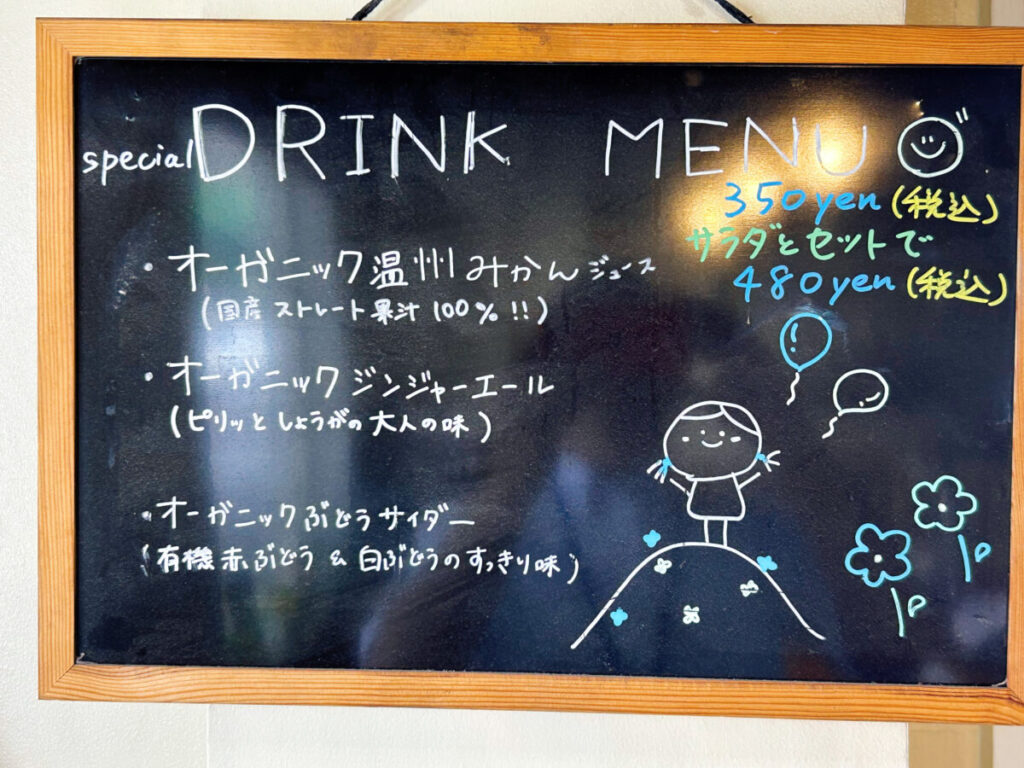 special DRINK MENU
350yen (税込)
サラダとセットで
480yen (税込)
・オーガニック温州みかんジュース
(国産ストレート果汁100%!!)
・オーガニックジンジャーエール
(ピリッとしょうがの大人の味)
・オーガニックぶどうサイダー
(有機赤ぶどう & 白ぶどうのすっきり味)
!